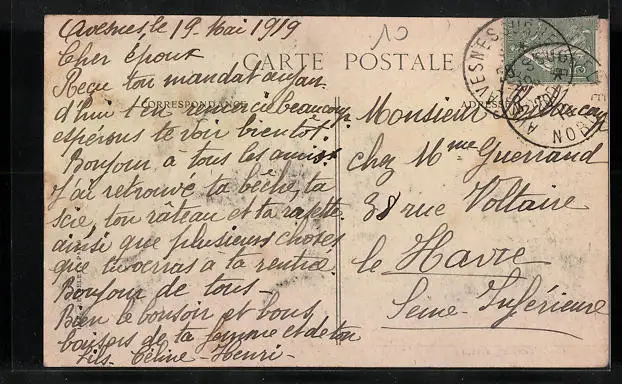 Avesnes, le 19 Mai 1919
Cher Époux
Reçue ton mandat aujour
d'hui t'en remercie beaucoup
espérons te voir bientôt.
Bonjour à tous les amis
J'ai retrouvé ta bêche, ta
scie, ton râteau et ta raclette
ainsi que plusieurs choses
que tu verras à ta rentrée.
Bonjour de tous
Bien le bonsoir et bons
baisers de ta femme et de ton
fils. Céline-Henri-
10
CARTE POSTALE
CORRESPONDANCE
ADRESSE
Monsieur
chez Mme Guerrand
38 rue Voltaire
le Havre
Seine-Inférieure
AVESNES